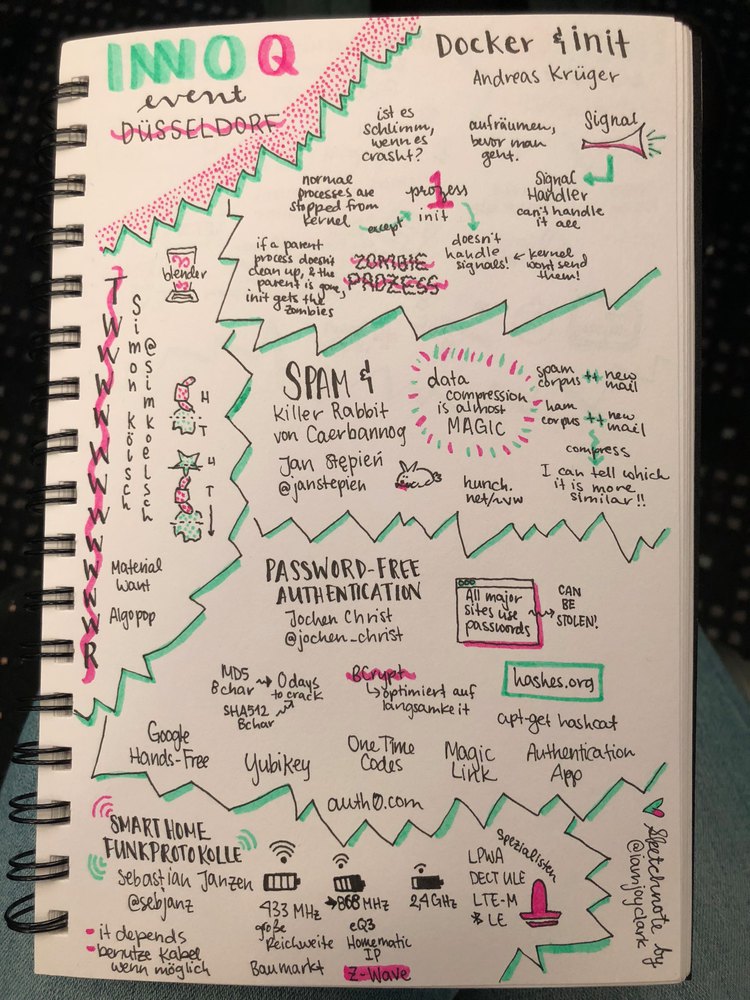 INNOQ
event
DÜSSELDORF
Docker & init
Andreas Krüger
ist es
schlimm,
wenn es
crasht?
aufräumen,
bevor man
geht.
Signal
Signal
Handler
can't handle
it all
normal
processes are
stopped from
kernel
except
prozess
1
init
doesn't
handle
signals!
← kernel
won't send
them!
if a parent
process doesn't
clean up, & the
parent is gone,
init gets the
zombies
ZOMBIE
PROZESS
TWWWWWWWWWWR
Simon Kölsch
@simkoelsch
blender
H
T
H
T
Material
want
Algopop
SPAM &
Killer Rabbit
von Caerbannog
Jan Stępień
@janstepien
data
compression
is almost
MAGIC
hunch.
net/~vw
spam
corpus ++ new
mail
ham
corpus ++ new
mail
compress
I can tell which
it is more
similar!!
PASSWORD-FREE
AUTHENTICATION
Jochen Christ
@jochen_christ
All major
sites use
passwords
CAN
BE
STOLEN!
MD5
8char
0 days
to crack
SHA512
8char
BCrypt
optimiert auf
langsamkeit
hashes.org
apt-get hashcat
Google
Hands-Free
Yubikey
One Time
Codes
Magic
Link
Authentication
App
auth0.com
SMART HOME
FUNKPROTOKOLLE
Sebastian Janzen
@sebjanz
- it depends
- benutze Kabel
wenn möglich
433 MHz
große
Reichweite
Baumarkt
868 MHz
eQ3
Homematic
IP
Z-Wave
2,4 GHz
Spezialisten
LPWA
DECT ULE
LTE-M
LE
Sketchnote by
@iamjoyclark